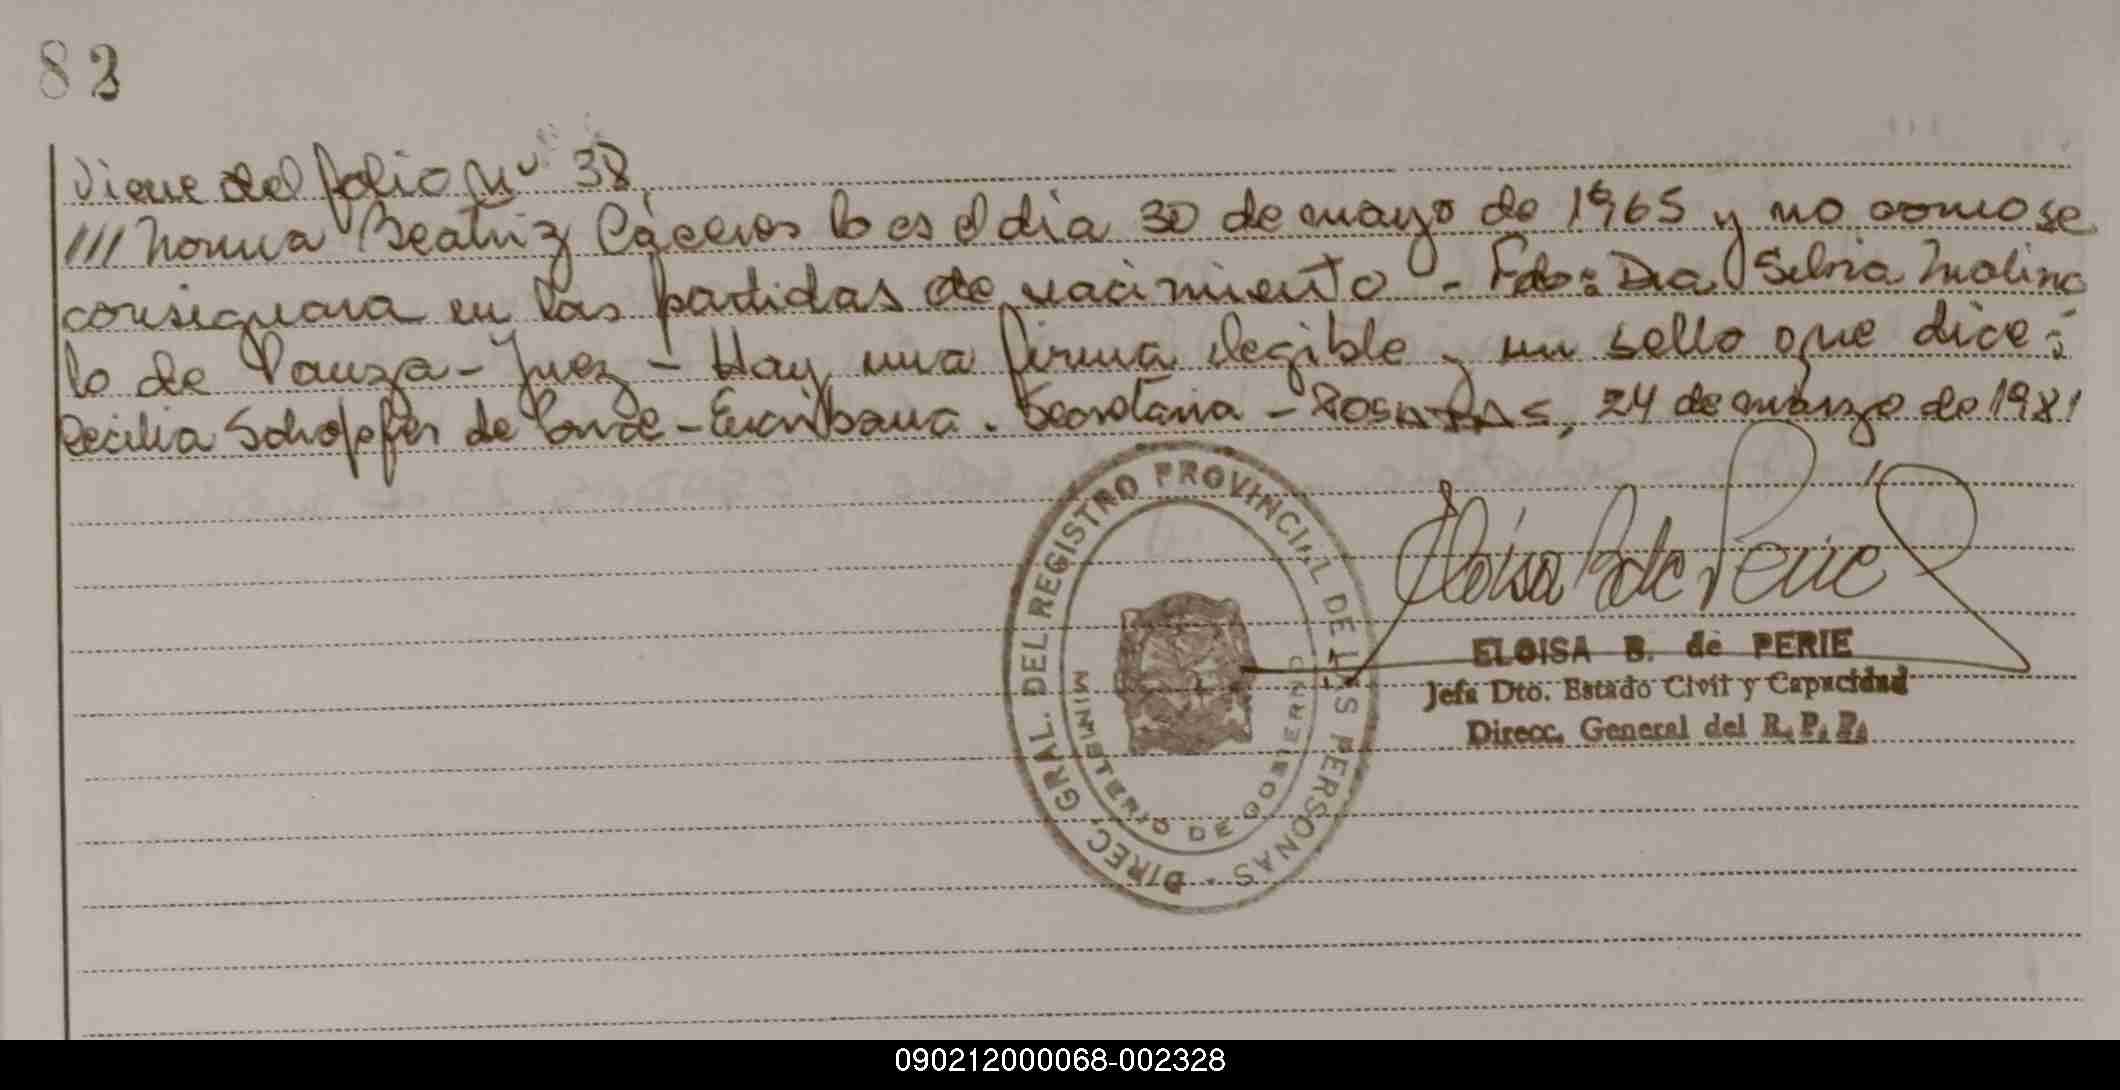 82
Viene del folio Nº 38
/// Norma Beatriz Cáceres lo es el dia 30 de mayo de 1965 y no como se
consignara en las partidas de nacimiento - Fdo: Dra Silvia Molina
lo de Panza - Juez - Hay una firma ilegible y un sello que dice:
Cecilia Schopfer de Ponce - Escribana. Secretaria - POSADAS, 24 de marzo de 1981
DIREC. GRAL. DEL REGISTRO PROVINCIAL DE LAS PERSONAS
MINISTERIO DE GOBIERNO
Eloisa B de Perié
ELOISA B. de PERIE
Jefa Dto. Estado Civil y Capacidad
Direcc. General del R. P. P.
090212000068-002328